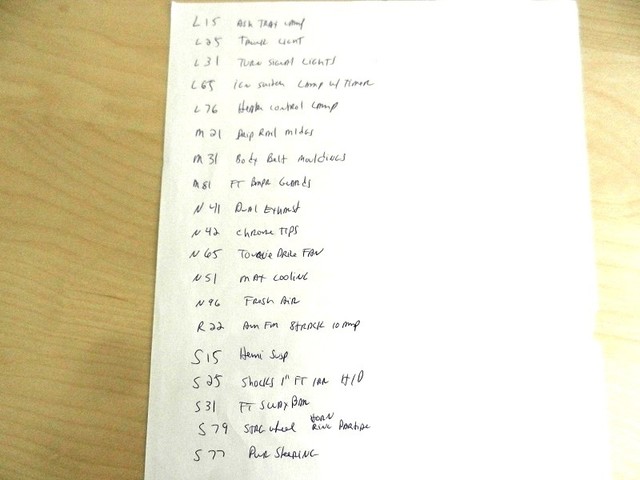 L15 Ash Tray Lamp
L25 Trunk Light
L31 Turn Signal Lights
L65 Ign Switch Lamp w/ Timer
L76 Heater Control Lamp
M21 Drip Rail Mldgs
M31 Body Belt Mouldings
M81 FT Bmpr Guards
N41 Dual Exhaust
N42 Chrome Tips
N65 Torque Drive Fan
N51 Max Cooling
N96 Fresh Air
R22 Am Fm 8track 10 amp
S15 Hemi Susp
S25 Shocks 1" FT H/D
S31 FT Sway Bar
Horn
S79 Strg Wheel Ring Partial
S77 Pwr Steering